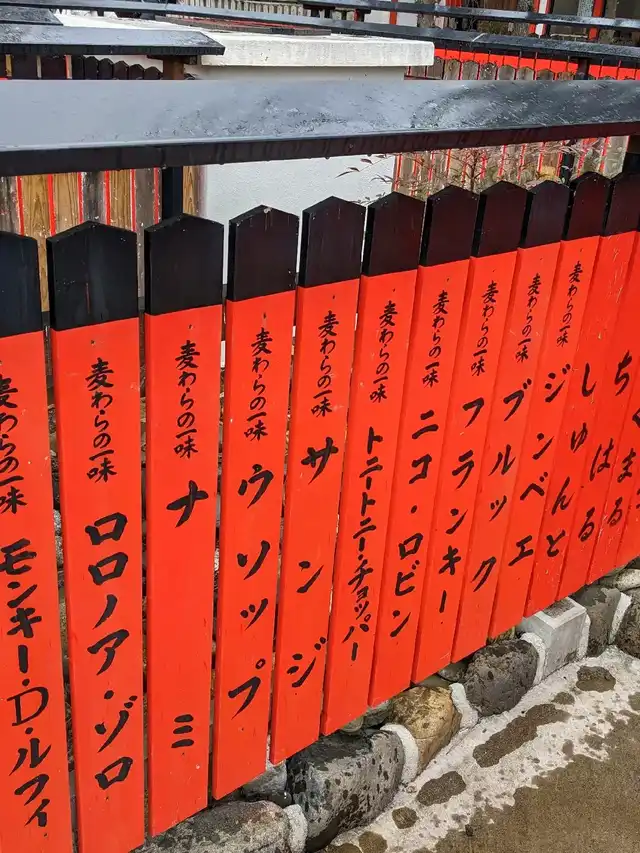 麦わらの一味 モンキー・D・ルフィ
麦わらの一味 ロロノア・ゾロ
麦わらの一味 ナミ
麦わらの一味 ウソップ
麦わらの一味 サンジ
麦わらの一味 トニートニー・チョッパー
麦わらの一味 ニコ・ロビン
麦わらの一味 フランキー
麦わらの一味 ブルック
麦わらの一味 ジンベエ
しゅんと
ちはる